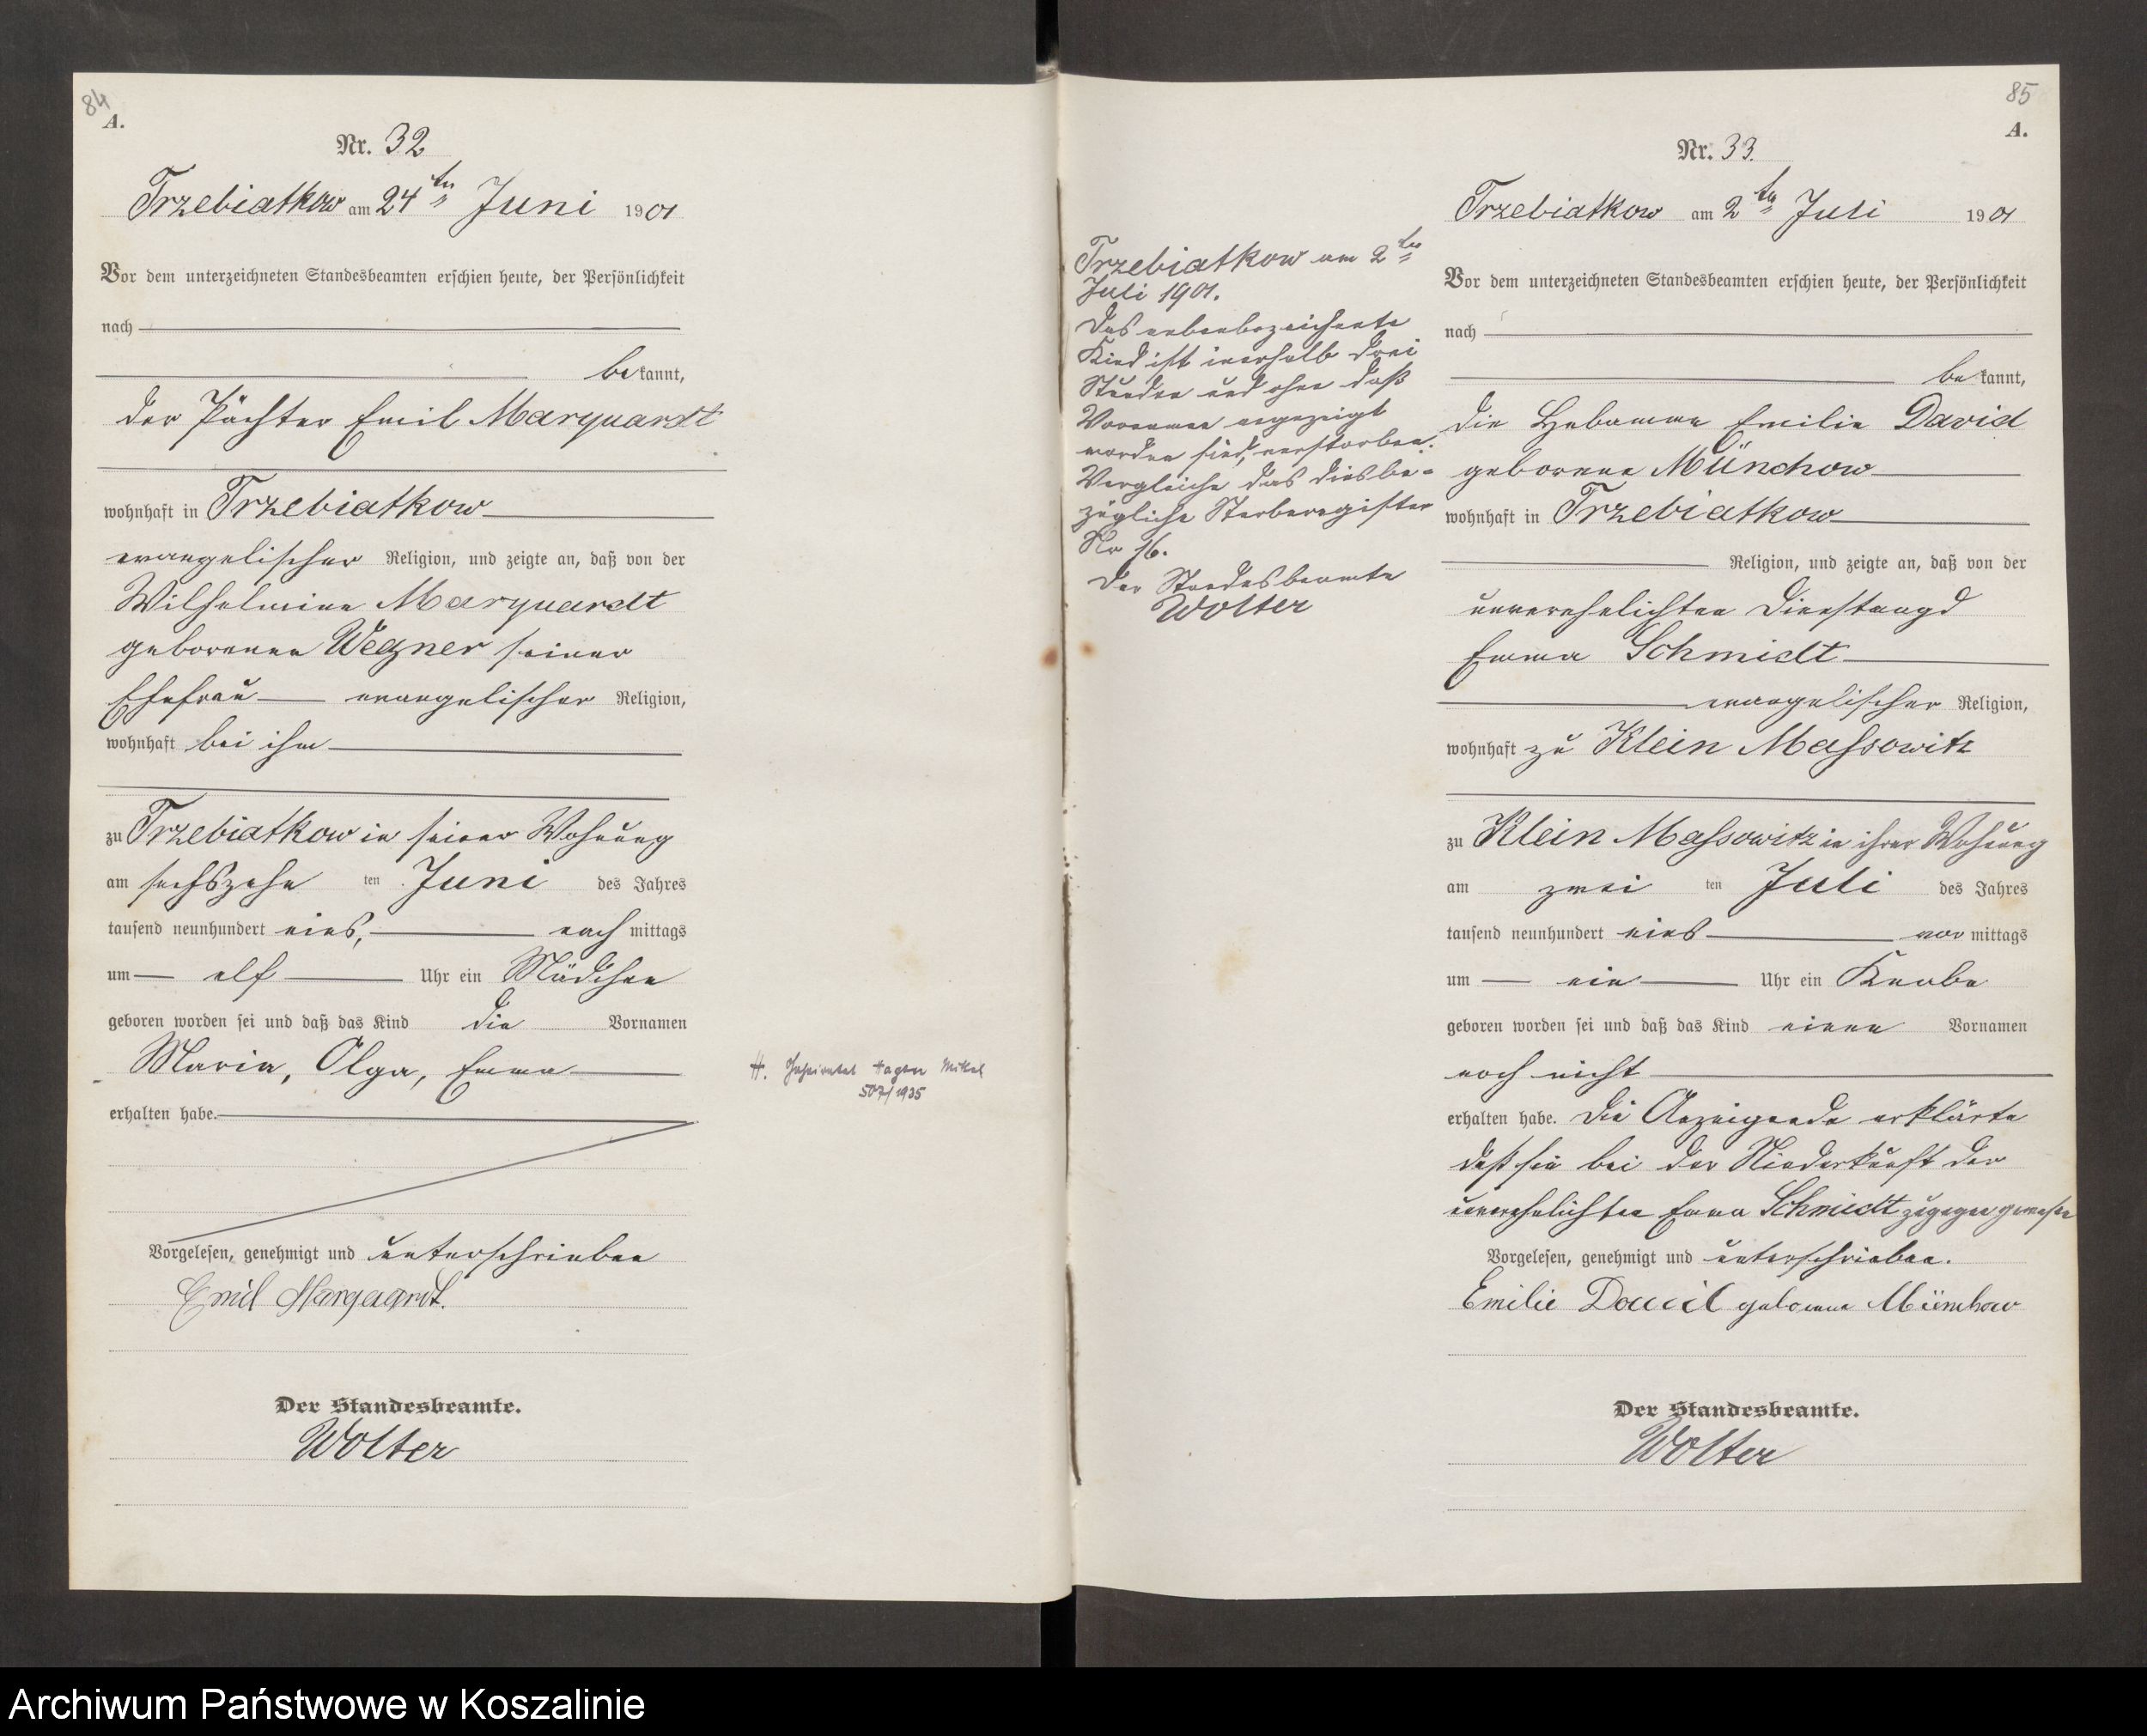 84
A.
Nr. 32
Trzebiatkow am 24ten Juni 1901
Vor dem unterzeichneten Standesbeamten erschien heute, der Persönlichkeit
nach
bekannt,
der Pächter Emil Marquardt
wohnhaft in Trzebiatkow
evangelischer Religion, und zeigte an, daß von der
Wilhelmine Marquardt
geborenen Wegner seiner
Ehefrau evangelischer Religion,
wohnhaft bei ihm
zu Trzebiatkow in seiner Wohnung
am sechszehn ten Juni des Jahres
tausend neunhundert eins, nach mittags
um elf Uhr ein Mädchen
geboren worden sei und daß das Kind die Vornamen
Maria, Olga, Emma
erhalten habe.
Vorgelesen, genehmigt und unterschrieben
Emil Marquardt.
Der Standesbeamte.
Wolter
H. Hagen
507/1935
Trzebiatkow am 2ten
Juli 1901.
Das nebenbezeichnete
Kind ist inerhalb drei
Stunden und ohne daß
Vornamen angezeigt
worden sind, verstorben.
Vergleiche das diesbe-
zügliche Sterberegister
No 16.
Der Standesbeamte
Wolter
85
A.
Nr. 33.
Trzebiatkow am 2ten Juli 1901
Vor dem unterzeichneten Standesbeamten erschien heute, der Persönlichkeit
nach
bekannt,
die Hebamme Emilie David
geborene Münchow
wohnhaft in Trzebiatkow
Religion, und zeigte an, daß von der
unverehelichten Dienstmagd
Emma Schmidt
evangelischer Religion,
wohnhaft zu Klein Massowitz
zu Klein Massowitz in ihrer Wohnung
am zwei ten Juli des Jahres
tausend neunhundert eins vor mittags
um ein Uhr ein Knabe
geboren worden sei und daß das Kind einen Vornamen
noch nicht
erhalten habe. Die Anzeigende erklärte
daß sie bei der Niederkunft der
unverehelichten Emma Schmidt zugegen gewesen
Vorgelesen, genehmigt und unterschrieben.
Emilie David geborene Münchow
Der Standesbeamte.
Wolter
Archiwum Państwowe w Koszalinie